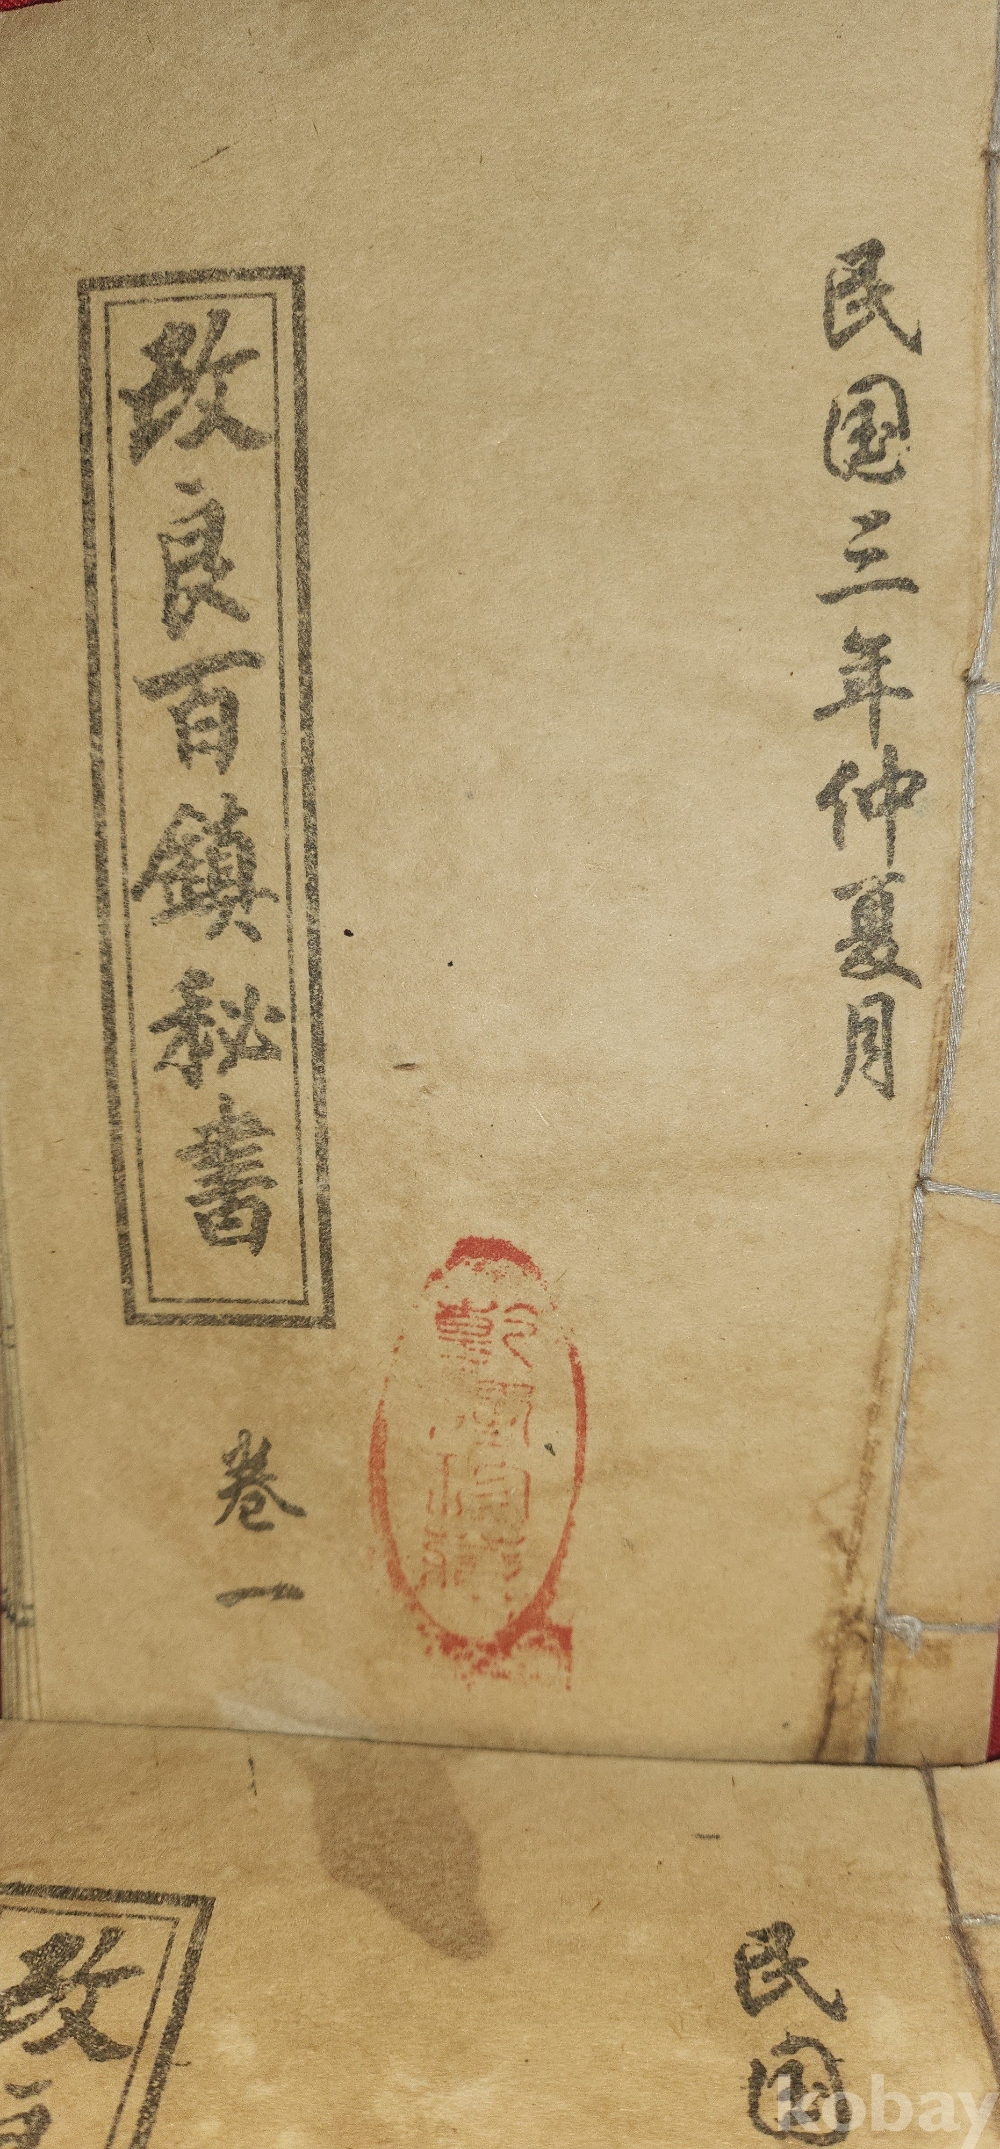 民国三年仲夏月
改良百鎮秘書
卷一
民国
改良
kobay